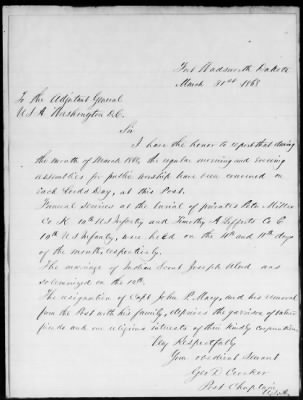 Fort Wadsworth Dakota
March 31st 1868
To the Adjutant General
U S A Washington D.C.
Sir
I have the honor to report that during
the month of March 1868, the regular morning and evening
assemblies for public worship have been convened on
each Lord's Day, at this Post.
Funeral services at the burial of privates Peter Miller
Co K. 10th U S Infantry and Timothy A Co C
10th U S Infantry, were held on the and 11th days
of the month, respectively.
The marriage of Indian Scout Joseph was
solemnized on the
The resignation of Capt John P. and his removal
from the Post with his family, deprives the garrison of valued
friends and our religious interests of their kindly cooperation
Very Respectfully
Your obedient Servant
Geo D. Crocker
Post Chaplain
U.S.A.